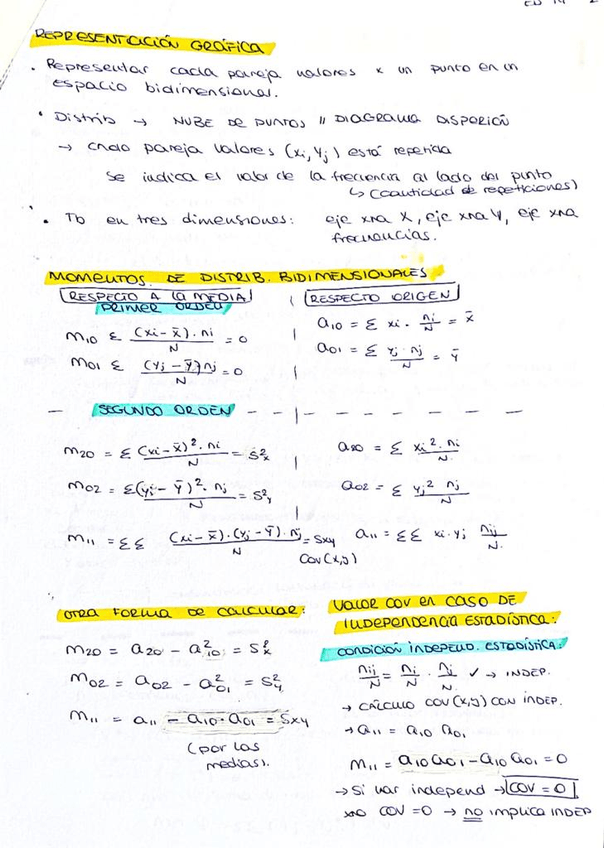 REPRESENTACIÓN GRÁFICA
· Representar cada pareja valores x un punto en un
espacio bidimensional.
· Distrib → NUBE DE PUNTOS // DIAGRAMA DISPERIÓN
→ cada pareja valores (xi, yj) está repetida
Se indica el valor de la frecuencia al lado del punto
↳ (cantidad de repeticiones)
· Tb en tres dimensiones: eje xra X, eje xra Y, eje xra
frecuencias.
MOMENTOS DE DISTRIB. BIDIMENSIONALES
RESPECTO A LA MEDIA | RESPECTO ORIGEN
PRIMER ORDEN
m10 Σ (xi - x̄) · ni / N = 0
a10 = Σ xi · ni / N = x̄
m01 Σ (yj - ȳ) nj / N = 0
a01 = Σ yj · nj / N = ȳ
SEGUNDO ORDEN
m20 = Σ (xi - x̄)² · ni / N = S²x
a20 = Σ xi² · ni / N
m02 = Σ (yj - ȳ)² · nj / N = S²y
a02 = Σ yj² nj / N
m11 = Σ Σ (xi - x̄) · (yj - ȳ) · nij / N = Sxy
COV(x,y)
a11 = Σ Σ xi · yj nij / N
OTRA FORMA DE CALCULAR:
m20 = a20 - a²10 = S²x
m02 = a02 - a²01 = S²y
m11 = a11 - a10 · a01 = Sxy
(por las
medias).
VALOR COV EN CASO DE
INDEPENDENCIA ESTADÍSTICA:
CONDICIÓN INDEPEND. ESTADÍSTICA:
nij / N = ni / N · nj / N ✓ → INDEP.
→ CÁLCULO COV(x,y) CON INDEP.
→ a11 = a10 a01
m11 = a10 a01 - a10 a01 = 0
→ Si var independ → COV = 0
COV = 0 → no implica INDEP